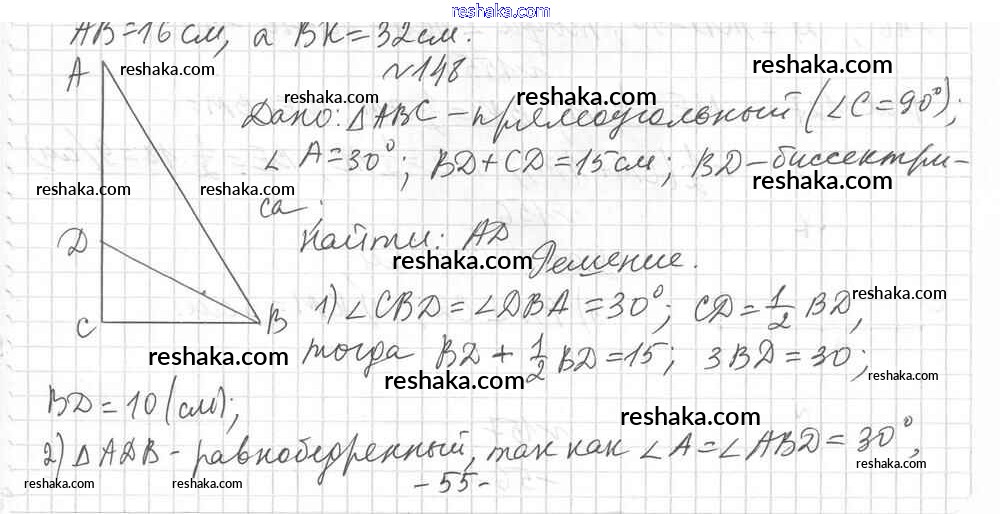 reshaka.com
AB=16см, а BK=32см.
№148
Дано: △ABC – прямоугольный (∠C=90°);
∠A=30°; BD+CD=15см; BD – биссектри-
са;
Найти: AD
Решение.
1) ∠CBD=∠DBA=30°; CD=1/2 BD,
тогда BD+1/2 BD=15; 3BD=30;
BD=10(см);
2) △ADB – равнобедренный, так как ∠A=∠ABD=30°,
-55-
A
D
C
B
reshaka.com
reshaka.com
reshaka.com
reshaka.com
reshaka.com
reshaka.com
reshaka.com
reshaka.com
reshaka.com
reshaka.com
reshaka.com
reshaka.com
reshaka.com
reshaka.com
reshaka.com
reshaka.com
reshaka.com
reshaka.com